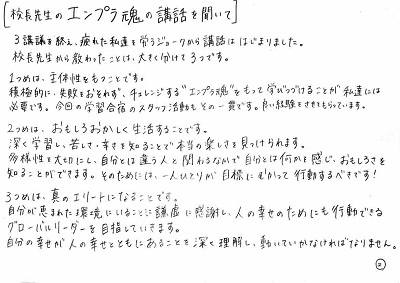 [校長先生のエンプラ魂の講話を聞いて]
3講議を終え、疲れた私達を労うジョークから講話ははじまりました。
校長先生から教わったことは、大きく分けて3つです。
1つめは、主体性をもつことです。
積極的に、失敗をおそれず、チャレンジする"エンプラ魂"をもって学びつづけることが私達には
必要です。今回の学習合宿のスタッフ活動もその一貫です。良い経験をさせてもらっています。
2つめは、おもしろおかしく生活することです。
深く学習し、苦しさ・辛さを知ることで本当の楽しさを見つけられます。
多様性を大切にし、自分とは違う人と関わるなかで自分とは何かを感じ、おもしろさを
知ることができます。そのためには、一人ひとりが目標にむかって行動するべきです!
3つめは、真のエリートになることです。
自分が恵まれた環境にいることに謙虚に感謝し、人の幸せのためにも行動できる
グローバルリーダーを目指していきます。
自分の幸せが人の幸せとともにあることを深く理解し、動いていかなければなりません。
②